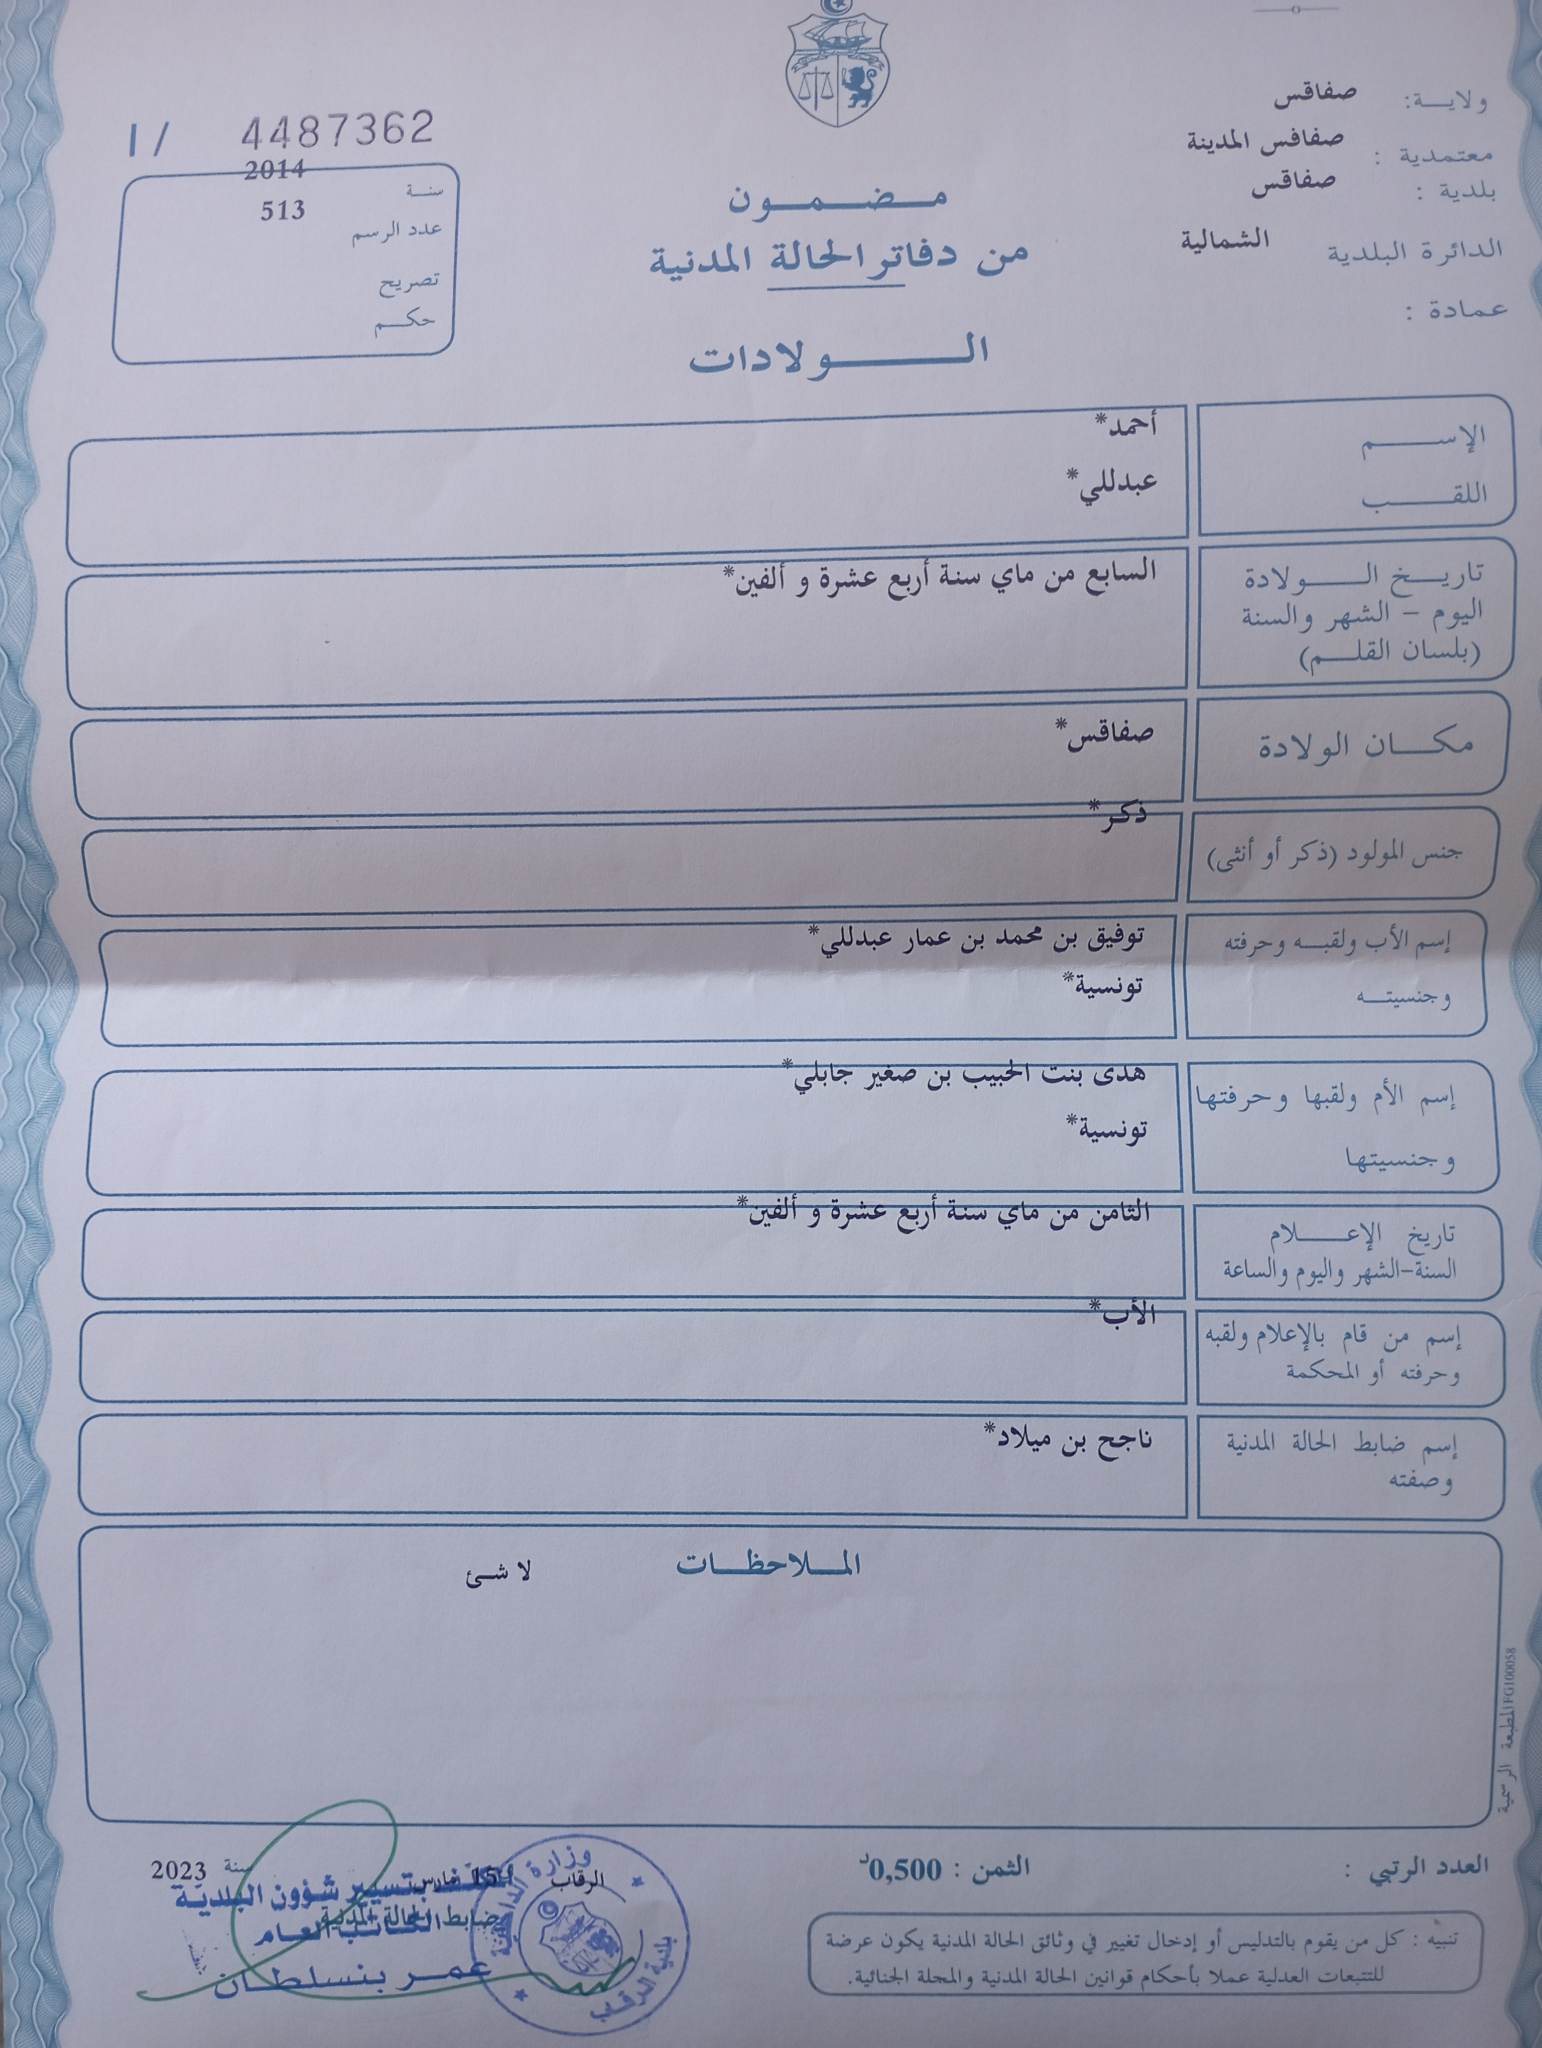 ولايـــة: صفاقس
معتمدية : صفاقس المدينة
بلدية : صفاقس
الدائرة البلدية الشمالية
عمادة :
I / 4487362
سنـة 2014
عدد الرسم 513
تصريح
حكـــم
مـــضـــمـــون
من دفاتر الحالة المدنية
الـــــولادات
الإســــــم أحمد*
اللقــــــب عبدللي*
تاريــــخ الــــــولادة السابع من ماي سنة أربع عشرة و ألفين*
اليوم - الشهر والسنة
(بلسان القلـــم)
مكــــان الولادة صفاقس*
جنس المولود (ذكر أو أنثى) ذكر*
إسم الأب ولقبـــه وحرفته توفيق بن محمد بن عمار عبدللي*
وجنسيتـــه تونسية*
إسم الأم ولقبها وحرفتها هدى بنت الحبيب بن صغير جابلي*
وجنسيتها تونسية*
تاريخ الإعــــــلام الثامن من ماي سنة أربع عشرة و ألفين*
السنة-الشهر واليوم والساعة
إسم من قام بالإعلام ولقبه الأب*
وحرفته أو المحكمة
إسم ضابط الحالة المدنية ناجح بن ميلاد*
وصفته
المـــلاحظـــات لا شئ
المطبعة الرسمية FG100058
العدد الرتبي :
الثمن : 0,500د
الرقاب 15 مارس سنة 2023
المكلف بتسيير شؤون البلدية
ضابط الحالة المدنية
الكاتب العام
عمر بنسلطان
وزارة الداخلية
بلدية الرقاب
تنبيه : كل من يقوم بالتدليس أو إدخال تغيير في وثائق الحالة المدنية يكون عرضة
للتتبعات العدلية عملا بأحكام قوانين الحالة المدنية والمجلة الجنائية.